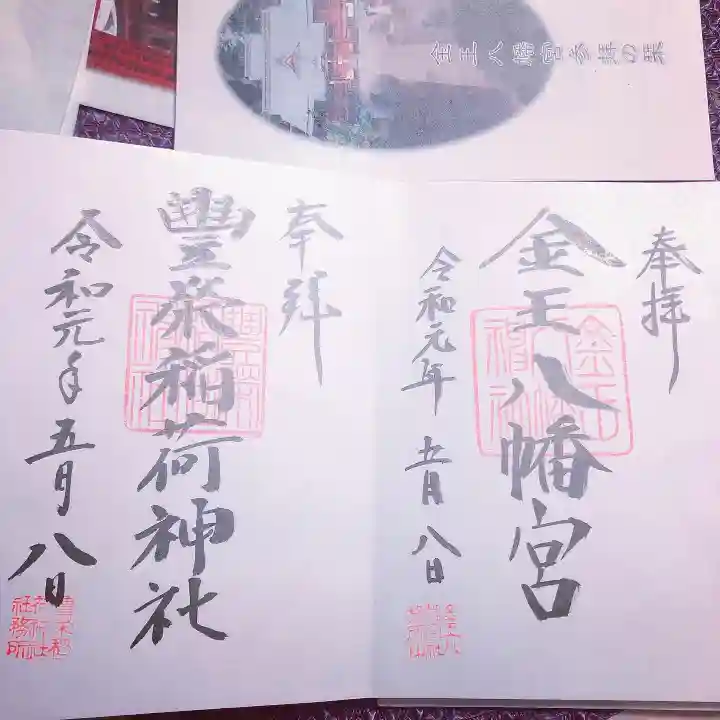 金王八幡宮参拝の栞
奉拝
金王八幡宮
令和元年五月八日
奉拝
豊栄稲荷神社
令和元年五月八日